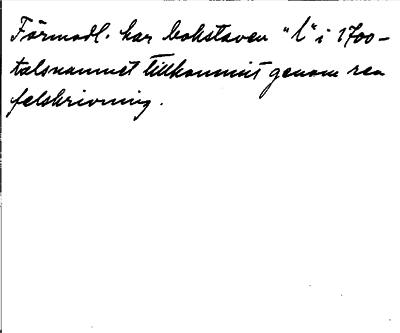 Förmodl. har bokstaven "l" i 1700-
talsnamnet tillkommit genom ren
felskrivning.